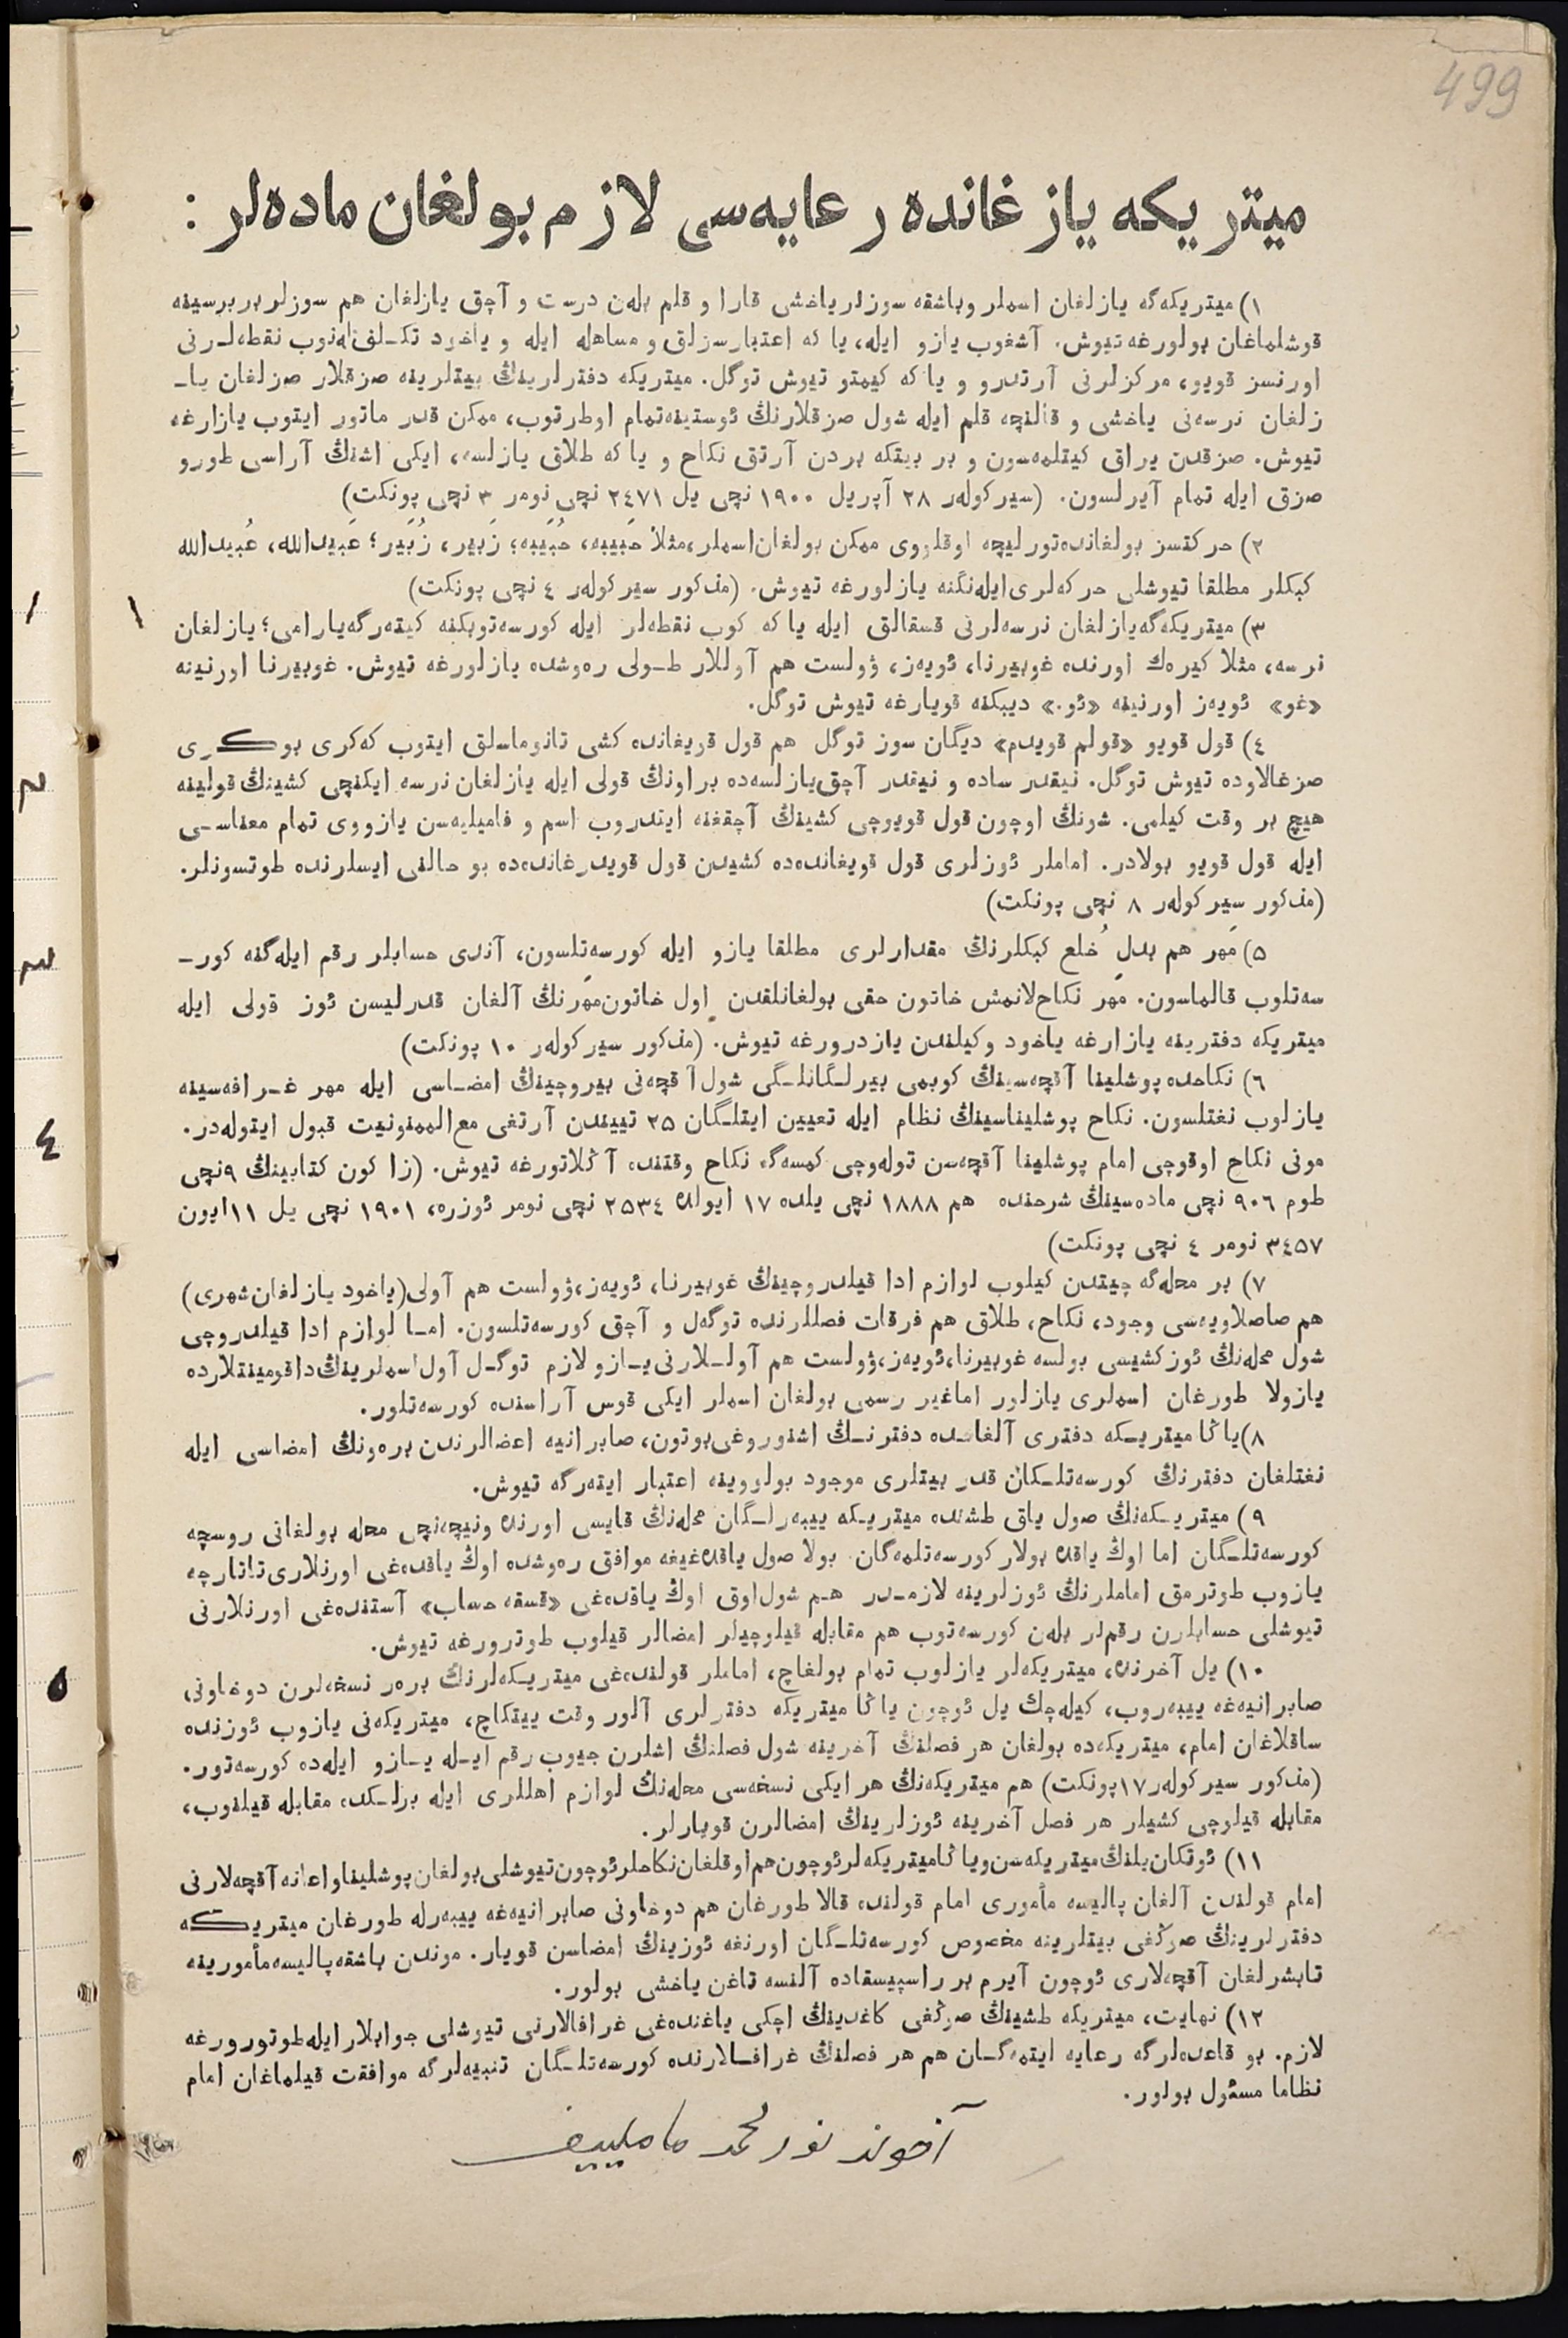 499
ميتريكه يازغانده رعايه‌سى لازم بولغان ماده‌لر :
١) ميتريكه‌گه يازلغان اسملر وباشقه سوزلر ياخشى قارا و قلم بله‌ن درست و آچق يازلغان هم سوزلر بربرسينه
قوشلماغان بولورغه تيوش. آشغوب يازو ايله، يا كه اعتبارسزلق و مساهله ايله و ياخود تكـلفـله‌نوب نقطه‌لـرنى
اورنسز قويو، مركزلرنى آرتدرو و يا كه كيمتو تيوش توگل. ميتريكه دفترلرينڭ بيتلرينه صزقلار صزلغان يا-
زلغان نرسه‌نى ياخشى و قالنچه قلم ايله شول صزقلارنڭ ئوستينه‌تمام اوطرتوب، ممكن قدر ماتور ايتوب يازارغه
تيوش. صزقدن يراق كيتلمه‌سون و بر بيتكه بردن آرتق نكاح و يا كه طلاق يازلسه، ايكى اشنڭ آراسى طورو
صزق ايله تمام آيرلسون. (سيركوله‌ر ٢٨ آپريل ١٩٠٠ نچى يل ٢٤٧١ نچى نومر ٣ نچى پونكت)
٢) حركتسز بولغانده‌تورليچه اوقلووى ممكن بولغان‌اسملر،مثلا حَبيبه، حُبَيبه؛ زَبير، زُبَير؛ عَبيدالله، عُبيدالله
كبكلر مطلقا تيوشلى حركه‌لرى‌ايله‌نگنه يازلورغه تيوش. (مذكور سيركوله‌ر ٤ نچى پونكت)
٣) ميتريكه‌گه‌يازلغان نرسه‌لرنى قسقالق ايله يا كه كوب نقطه‌لر ايله كورسه‌توبكنه كيته‌رگه‌يارامى؛ يازلغان
نرسه، مثلا كيره‌ك اورنده غوبيرنا، ئويه‌ز، ۋولست هم آوللار طـولى ره‌وشده يازلورغه تيوش. غوبيرنا اورنينه
«غو» ئويه‌ز اورنينه «ئو.» ديبكنه قويارغه تيوش توگل.
٤) قول قويو «قولم قويدم» ديگان سوز توگل هم قول قويغانده كشى تانوماسلق ايتوب كه‌كرى بوكـرى
صزغالاوده تيوش توگل. نيقدر ساده و نيقدر آچق‌يازلسه‌ده براونڭ قولى ايله يازلغان نرسه ايكنچى كشينڭ قولينه
هيچ بر وقت كيلمى. شونڭ اوچون قول قويوچى كشينڭ آچقغنه ايتدروب اسم و فاميليه‌سن يازووى تمام معناسـى
ايله قول قويو بولادر. اماملر ئوزلرى قول قويغانده‌ده كشيدن قول قويدرغانده‌ده بو حالنى ايسلرنده طوتسونلر.
(مذكور سيركوله‌ر ٨ نچى پونكت)
٥) مَهر هم بدل خُلع كبكلرنڭ مقدارلرى مطلقا يازو ايله كورسه‌تلسون، آندى حسابلر رقم ايله‌گنه كور-
سه‌تلوب قالماسون. مَهر نكاح‌لانمش خاتون حقى بولغانلقدن اول خاتون‌مهرنڭ آلغان قدرليسن ئوز قولى ايله
ميتريكه دفترينه يازارغه ياخود وكيلندن يازدرورغه تيوش. (مذكور سيركوله‌ر ١٠ پونكت)
٦) نكاحده پوشلينا آقچه‌سينڭ كوبمى بيرلـگانلـگى شول آقچه‌نى بيروچينڭ امضـاسى ايله مهر غـرافه‌سينه
يازلوب نغتلسون. نكاح پوشليناسينڭ نظام ايله تعيين ايتلـگان ٢٥ تيندن آرتغى مع‌الممنونيت قبول ايتوله‌در.
مونى نكاح اوقوچى امام پوشلينا آقچه‌سن توله‌وچى كمسه‌گه نكاح وقتنده آڭلاتورغه تيوش. (زاكون كتابينڭ ٩نچى
طوم ٩٠٦ نچى ماده‌سينڭ شرحنده هم ١٨٨٨ نچى يلده ١٧ ايولده ٢٥٣٤ نچى نومر ئوزره، ١٩٠١ نچى يل ١١ايون
٣٤٥٧ نومر ٤ نچى پونكت)
٧) بر محله‌گه چيتدن كيلوب لوازم ادا قيلدروچينڭ غوبيرنا، ئويه‌ز،ۋولست هم آولى(ياخود يازلغان‌شهرى)
هم صاصلاويه‌سى وجود، نكاح، طلاق هم فرقات فصللرنده توگه‌ل و آچق كورسه‌تلسون. امـا لوازم ادا قيلدروچى
شول محله‌نڭ ئوزكشيسى بولسه غوبيرنا،ئويه‌ز،ۋولست هم آولـلارنى‌يـازو لازم توگـل آول‌اسملرينڭ‌داقومينتلارده
يازولا طورغان اسملرى يازلور اماغير رسمى بولغان اسملر ايكى قوس آراسنده كورسه‌تلور.
٨)ياڭا ميتريـكه دفترى آلغانـده دفترنـڭ اشنوروغى‌بوتون، صابرانيه اعضالرندن بره‌ونڭ امضاسى ايله
نغتلغان دفترنڭ كورسه‌تلـكان قدر بيتلرى موجود بولووينه اعتبار ايته‌رگه تيوش.
٩) ميتريـكه‌نڭ صول ياق طشنده ميتريـكه ييبه‌رلـگان محله‌نڭ قايسى اورنده ونيچه‌نچى محله بولغانى روسچه
كورسه‌تلـگان اما اوڭ ياقده بولار كورسه‌تلمه‌گان. بولا صول ياقده‌غيغه موافق ره‌وشده اوڭ ياقده‌غى اورنلارى‌تاتارچه
يازوب طوترمق اماملرنڭ ئوزلرينه لازمـدر هـم شول‌اوق اوڭ ياقده‌غى «قسقه حساب» آستنده‌غى اورنلارنى
تيوشلى حسابلرن رقم‌لر بله‌ن كورسه‌توب هم مقابله قيلوچيلر امضالر قيلوب طوترورغه تيوش.
١٠) يل آخرنده، ميتريكه‌لر يازلوب تمام بولغاچ، اماملر قولنده‌غى ميتريـكه‌لرنڭ بره‌ر نسخه‌لرن دوخاونى
صابرانيه‌غه ييبه‌روب، كيله‌چك يل ئوچون ياڭا ميتريكه دفترلرى آلور وقت ييتكاچ، ميتريكه‌نى يازوب ئوزنده
ساقلاغان امام، ميتريكه‌ده بولغان هر فصلنڭ آخرينه شول فصلنڭ اشلرن جيوب رقم ايـله يـازو ايله‌ده كورسه‌تور.
(مذكور سيركوله‌ر١٧پونكت) هم ميتريكه‌نڭ هر ايكى نسخه‌سى محله‌نڭ لوازم اهللرى ايله برلـكده مقابله قيلنوب،
مقابله قيلوچى كشيلر هر فصل آخرينه ئوزلرينڭ امضالرن قويارلر.
١١) ئوتكان‌يلنڭ‌ميتريكه‌سن‌وياڭاميتريكه‌لرئوچون‌هم‌اوقلغان‌نكاحلرئوچون‌تيوشلى‌بولغان‌پوشليناواعانه آقچه‌لارنى
امام قولندن آلغان پاليسه مأمورى امام قولنده قالا طورغان هم دوخاونى صابرانيه‌غه ييبه‌رله طورغان ميتريـكه
دفترلرينڭ صوڭغى بيتلرينه مخصوص كورسه‌تلـگان اورنغه ئوزينڭ امضاسن قويار. موندن باشقه‌پاليسه‌مأمورينه
تابشرلغان آقچه‌لارى ئوچون آيرم بر راسپيسقاده آلنسه تاغن ياخشى بولور.
١٢) نهايت، ميتريكه طشينڭ صوڭغى كاغدينڭ اچكى ياغنده‌غى غرافالارنى تيوشلى جوابلارايله‌طوتورورغه
لازم. بو قاعده‌لرگه رعايه ايتمه‌گـان هم هر فصلنڭ غرافـالارنده كورسه‌تلـگان تنبيه‌لرگه موافقت قيلماغان امام
نظاما مسئول بولور.
آخوند نورمحمد ماملييف